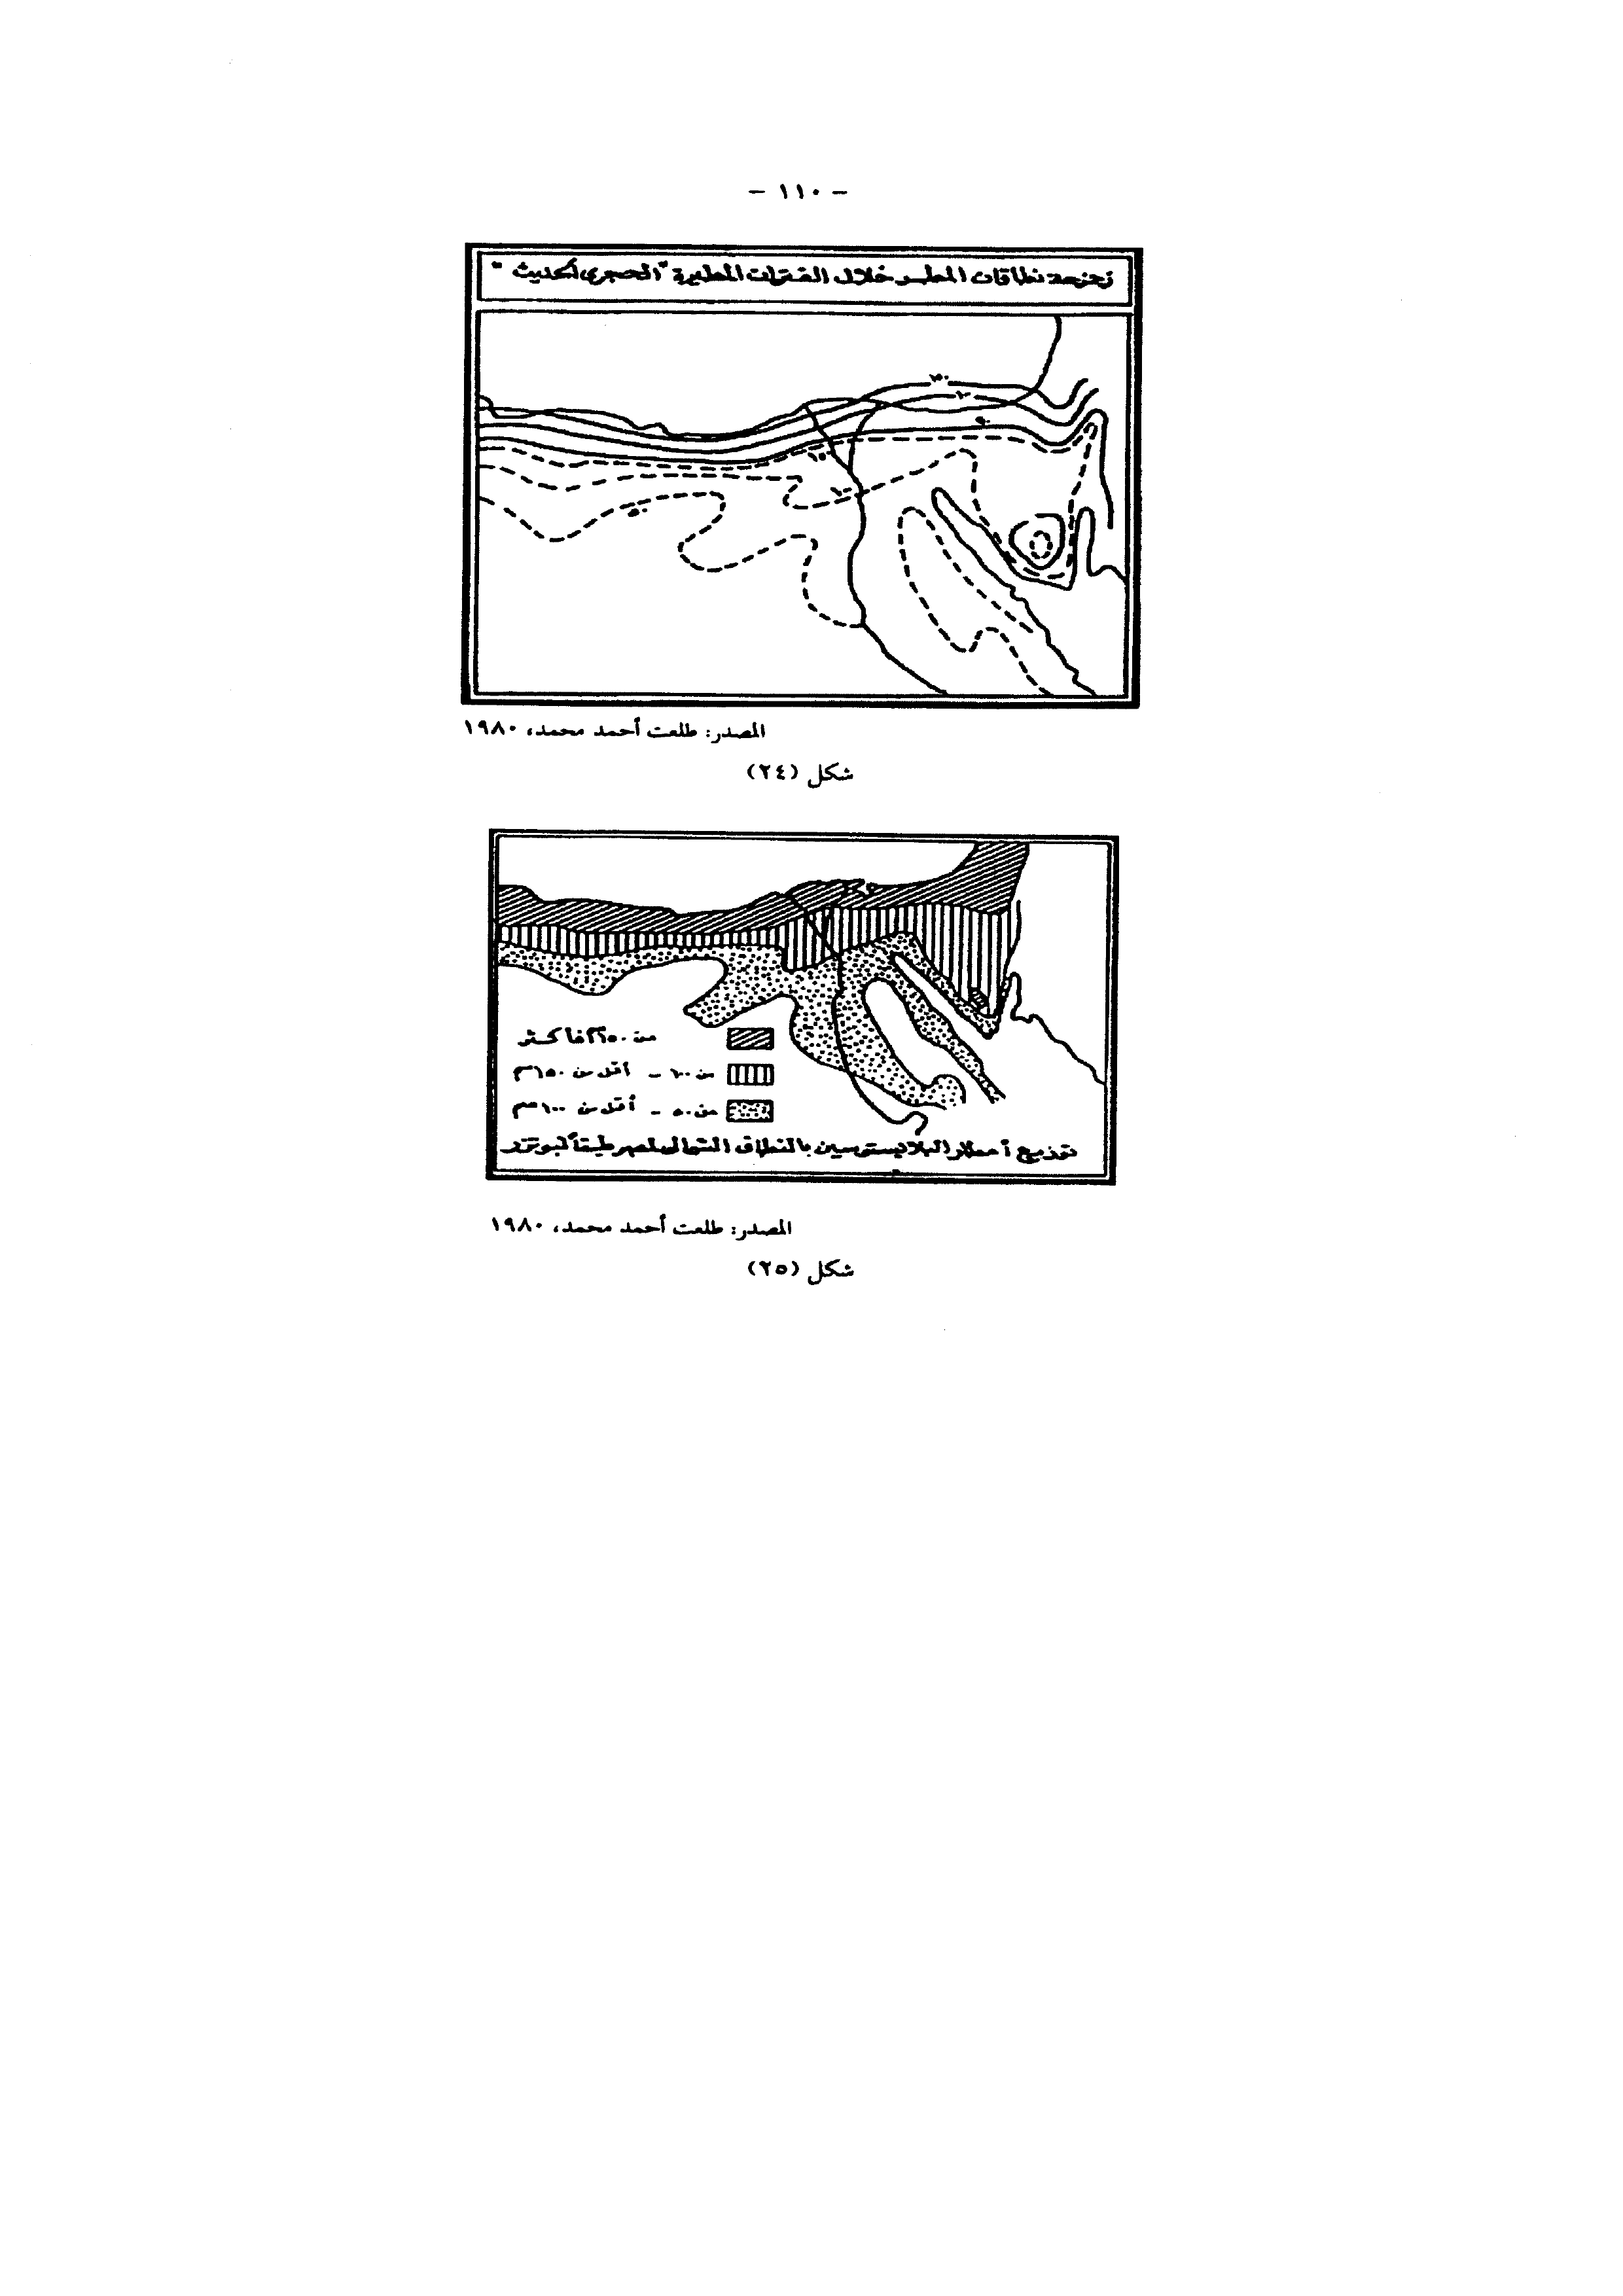 - ١١٠ -
زحزحة نطاقات المطر خلال الفترات المطيرة "الحجرى الحديث"
١٥٠
١٠٠
٥٠
١٥٠
١٠٠
٥٠
المصدر: طلعت أحمد محمد، ١٩٨٠
شكل (٢٤)
من ١٥٠ فأكثر
من ١٠٠ - أقل من ١٥٠ مم
من ٥٠ - أقل من ١٠٠ مم
توزيع أمطار البلايستوسين بالنطاق الشمالى لمصر طبقاً لبوتزر
المصدر: طلعت أحمد محمد، ١٩٨٠
شكل (٢٥)